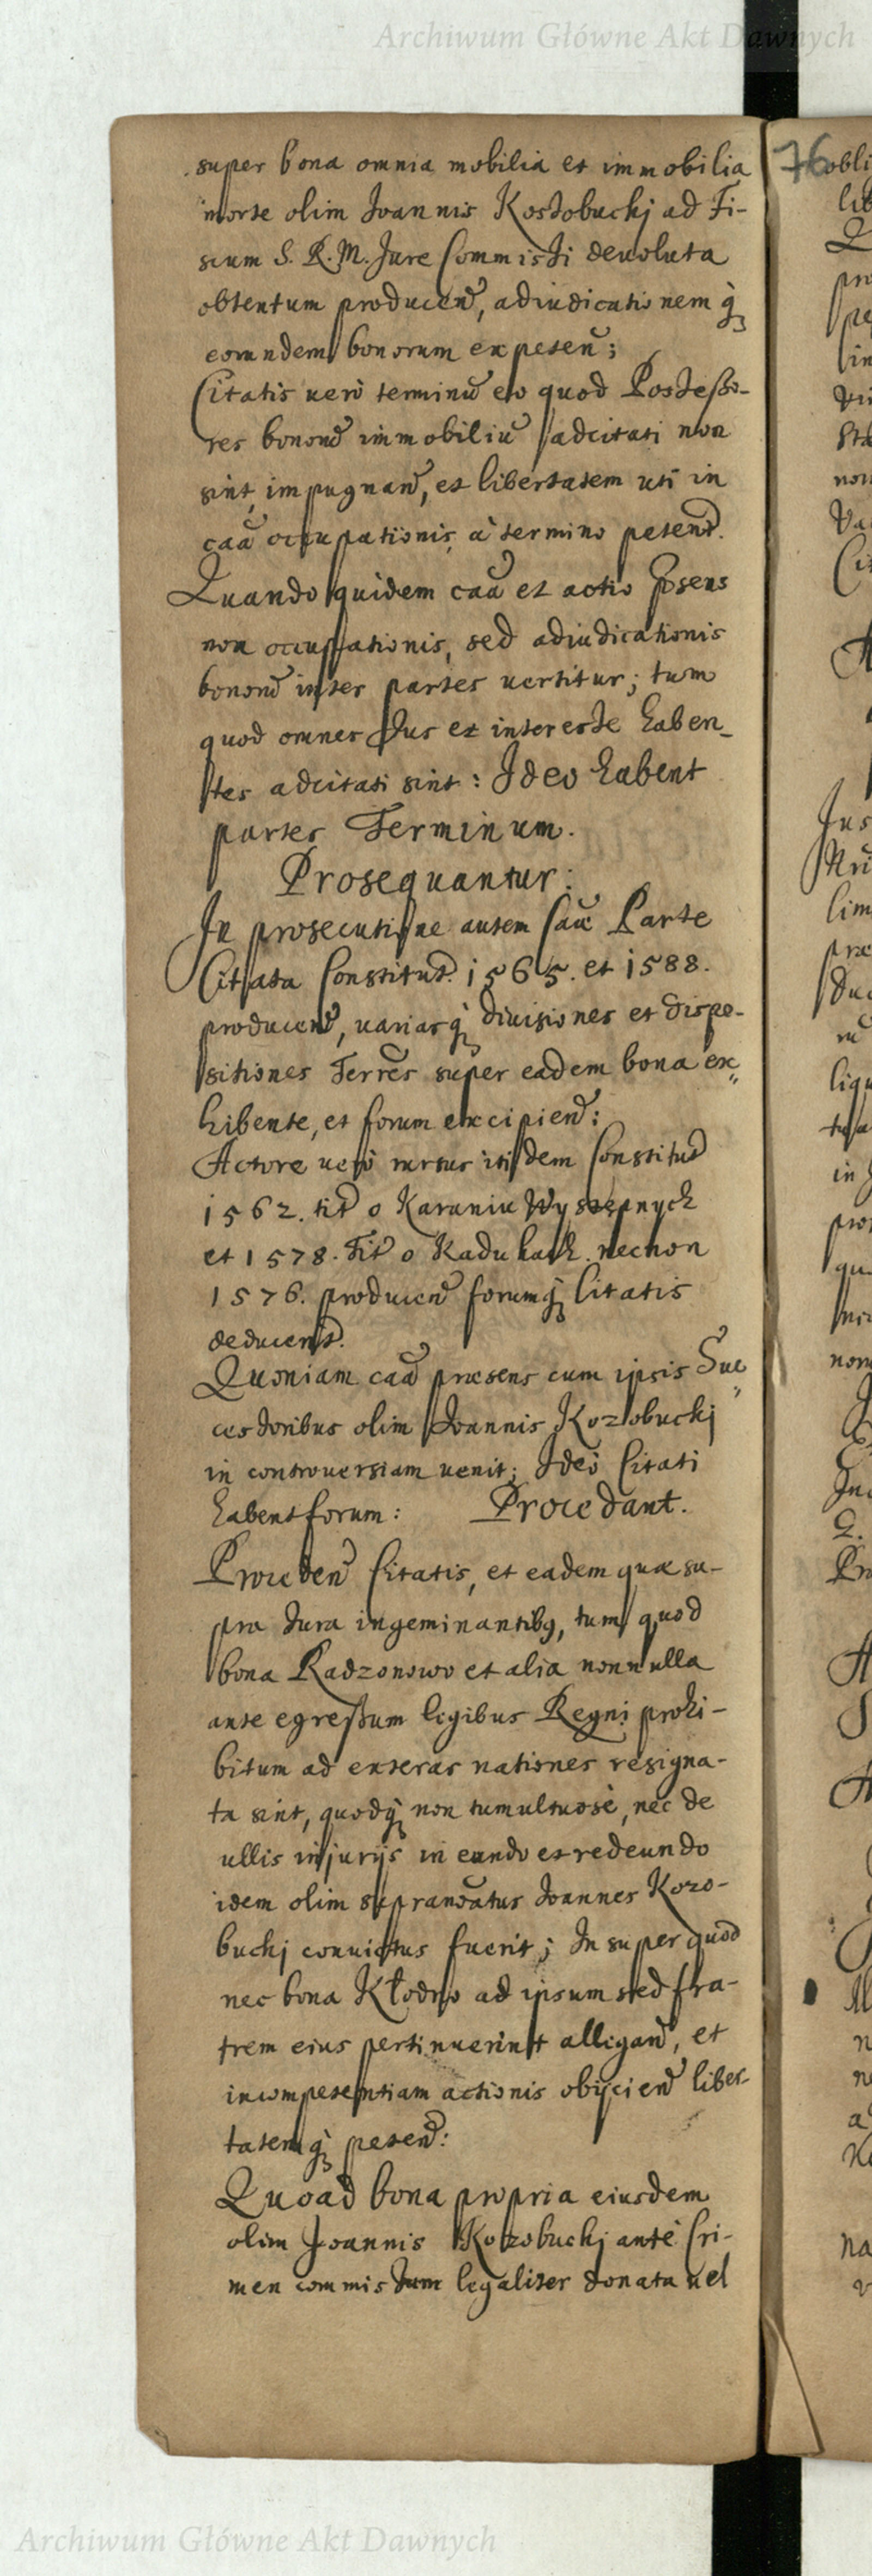 Archiwum Główne Akt Dawnych
super bona omnia mobilia et immobilia
morte olim Joannis Kosobuckj ad Fi-
scum S. R. M. Jure Commissi deuoluta
obtentum producen̄, adiudicationem q̀
eorundem bonorum expeten̄;
Citatis uerò terminū eo quod Possesso-
res bonorū immobiliū adcitati non
sint, impugnan̄, et libertatem uti in
caā occupationis, à termino peten̄.
Quando quidem caā et actio p̄sens
non occupationis, sed adiudicationis
bonorū inter partes uertitur; tum
quod omnes Jus et interesse haben_
tes adcitati sint: Ideo habent
partes Terminum.
Prosequantur:
In prosecutione autem caūe Parte
Citata Constitut. 1565. et 1588.
producen̄, uariasq̀ diuisiones et dispo-
sitiones Terrēs super eadem bona ex„
hibente, et forum excipien̄:
Actore uerò rursus itidem Constitut
1562. tit o Karaniu Wystepnych
et 1578. tit o Kadukach. necnon
1576. producen̄ forumq̀ Citatis
deducen̄.
Quoniam caā præsens cum ipsis Suc„
cessoribus olim Joannis Kozobuckj
in controuersiam uenit; Ideò Citati
habent forum: Procedant.
Proceden̄ Citatis, et eadem quæ su-
pra Jura ingeminantibȝ, tum quod
bona Radzonowo et alia nonnulla
ante egressum legibus Regni prohi-
bitum ad exteras nationes resigna-
ta sint, quodq̀ non tumultuosè, nec de
ullis injurijs in eundo et redeundo
idem olim supranōatus Joannes Kozo-
buckj conuictus fuerit; Insuper quod
nec bona Kłodno ad ipsum sed fra-
trem eius pertinuerint allegan̄, et
incompetentiam actionis obijcien̄ liber-
tatemq̀ peten̄:
Quoad bona propria eiusdem
olim Joannis Kozobuckj antè Cri-
men commissum legaliter donata uel
76
Archiwum Główne Akt Dawnych